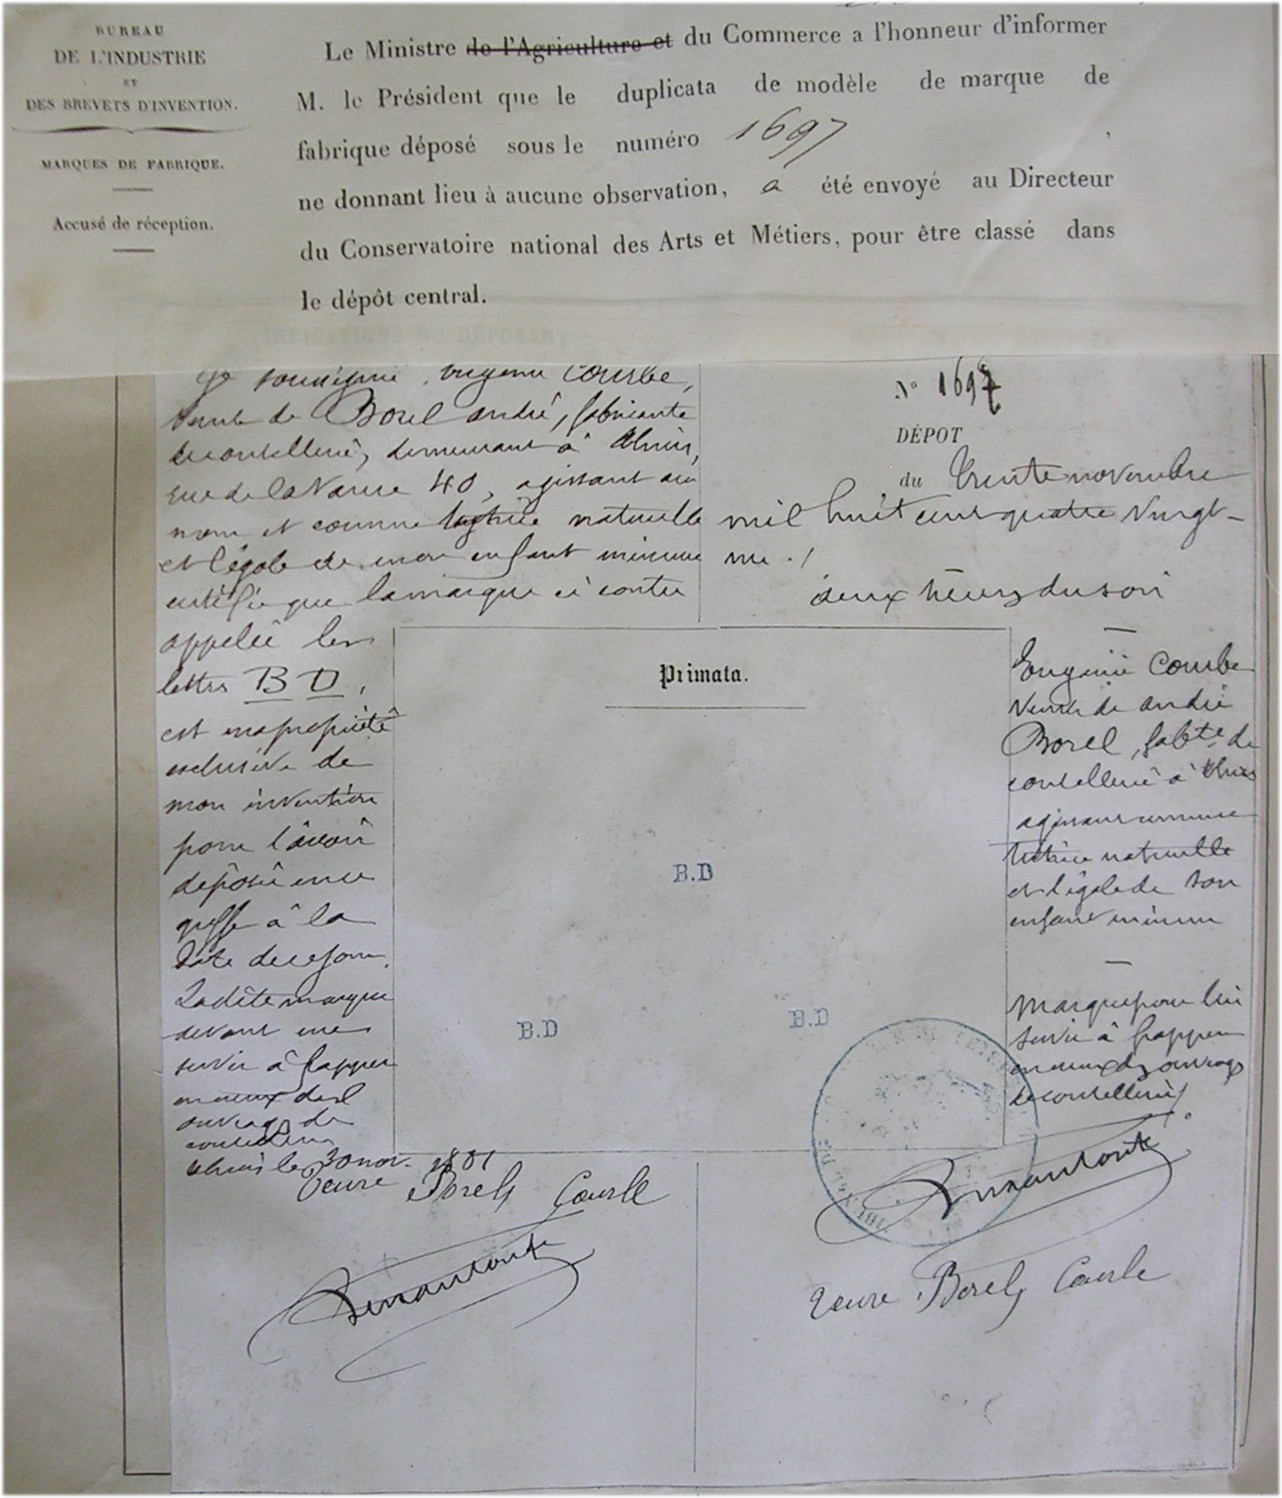 BUREAU
DE L'INDUSTRIE
ET
DES BREVETS D'INVENTION.
MARQUES DE FABRIQUE.
Accusé de réception.
Le Ministre de l'Agriculture et du Commerce a l'honneur d'informer
M. le Président que le duplicata de modèle de marque de
fabrique déposé sous le numéro 1697,
ne donnant lieu à aucune observation, a été envoyé au Directeur
du Conservatoire national des Arts et Métiers, pour être classé dans
le dépôt central.
INDICATIONS DU DÉPOSANT
Je soussigné, Eugénie Courbe,
veuve de Borel andré, fabricante
de coutellerie, demeurant à thiers,
rue de la Vaure 40, agissant au
nom et comme tutrice naturelle
et légale de mon enfant mineur
certifie que la marque ci contre
appelée les
lettres B D,
est ma propriété
exclusive de
mon invention
pour l'avoir
déposée au
greffe à la
date de ce jour.
Ladite marque
devant me
servir à frapper
en creux des
ouvrages de
coutellerie
thiers le 30 nov. 1881
Veuve Borel Courbe
N° 1697
DÉPOT
du trente novembre
mil huit cent quatre vingt-
un ./
deux heures du soir
Primata.
B.D
B.D
B.D
Eugénie Courbe
veuve de andré
Borel, fabte. de
coutellerie à thiers
agissant comme
tutrice naturelle
et légale de son
enfant mineur
Marque pour lui
servir à frapper
en creux des ouvrages
de coutellerie /
veuve Borel Courbe